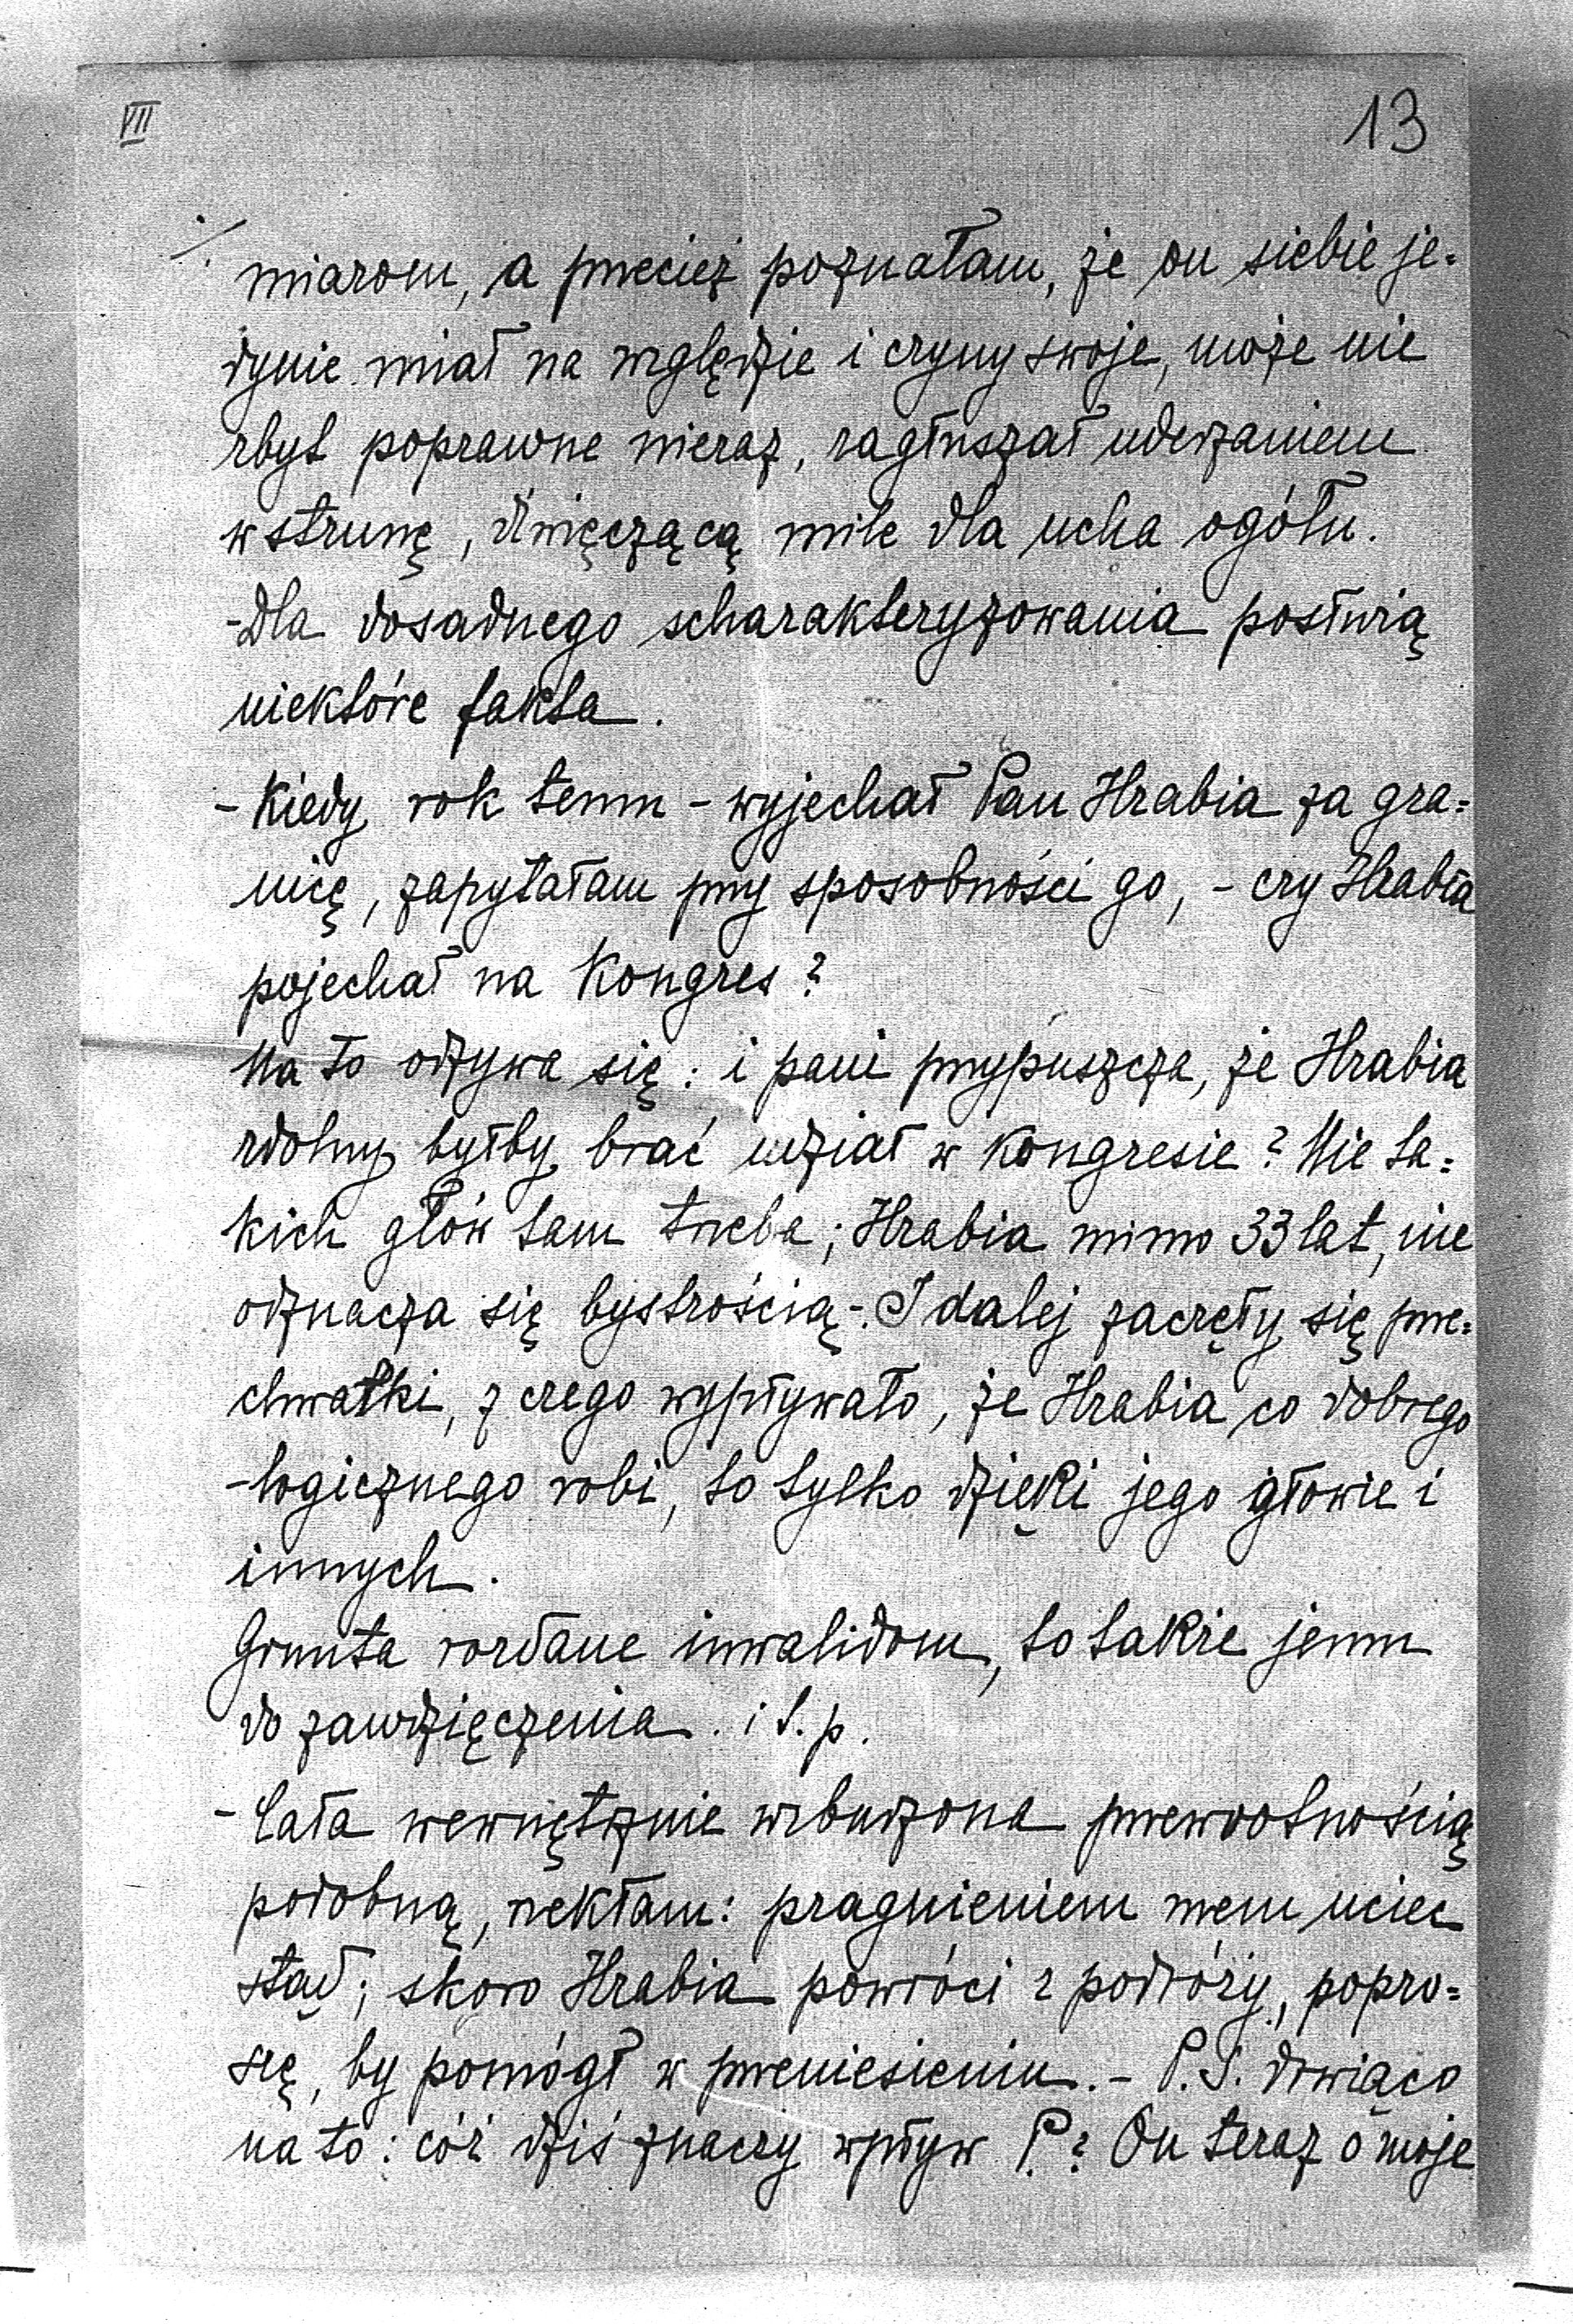 VII
13
./. miarom, a przecież poznałam, że on siebie je=
dynie miał na względzie i czyny swoje, może nie
zbyt poprawne nieraz, zagłuszał uderzaniem
w strunę, dźwięczącą mile dla ucha ogółu.
-Dla dosadnego scharakteryzowania posłużą
niektóre fakta.
- Kiedy rok temu - wyjechał Pan Hrabia za gra=
nicę, zapytałam przy sposobności go, - czy Hrabia
pojechał na Kongres?
Na to odzywa się: i pani przypuszcza, że Hrabia
zdolny byłby brać udział w Kongresie? Nie ta=
kich głów tam trzeba; Hrabia mimo 33 lat, nie
odznacza się bystrością-. I dalej zaczęły się prze=
chwałki, z czego wypływało, że Hrabia co dobrego
-logicznego robi, to tylko dzięki jego głowie i
innych.
Grunta rozdane inwalidom, to także jemu
do zawdzięczenia. i t.p.
- Cała wewnętrznie wzburzona przewrotnością
podobną, rzekłam: pragnieniem mem uciec
stąd; skoro Hrabia powróci z podróży, popro=
szę, by pomógł w przeniesieniu. - P.S. drwiąco
na to: cóż dziś znaczy wpływ P.? On teraz o moje